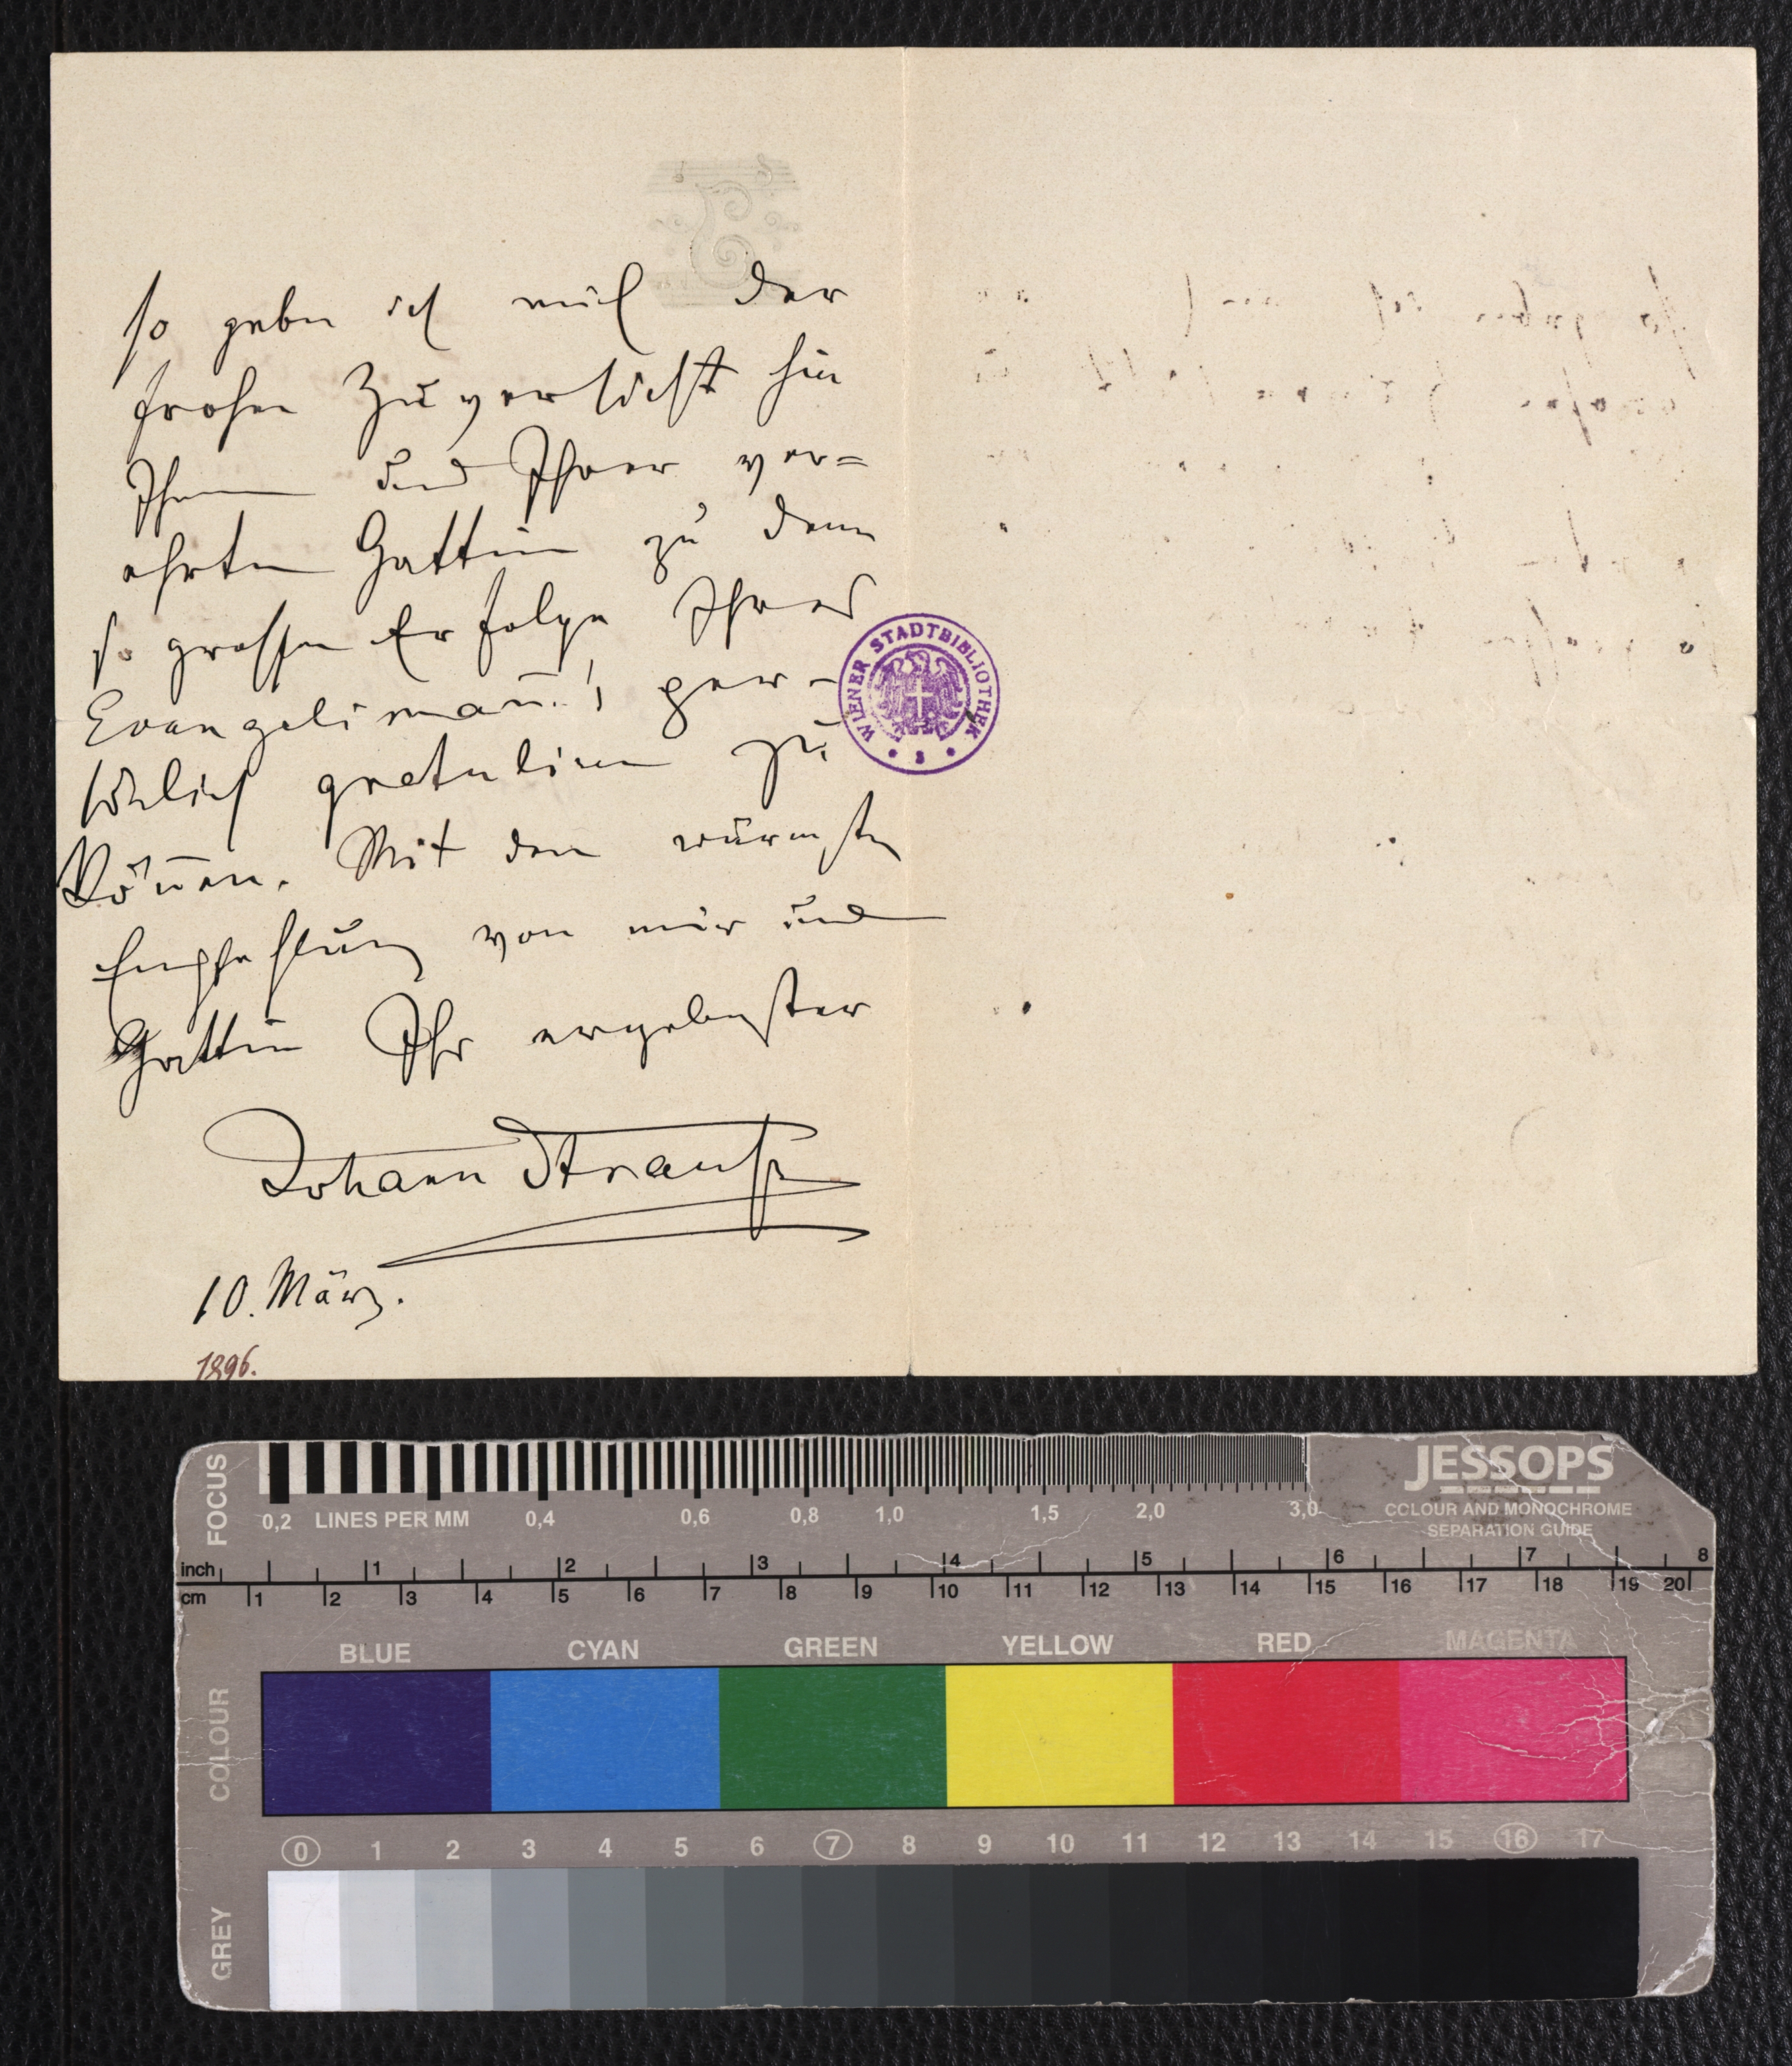 so gebe ich mich der
frohen Zuversicht hin
Ihnen und Ihrer ver=
ehrten Gattin zu dem
so grossen Erfolge Ihres
Evangelimañ! per-
sönlich gratuliren zu
köñen. Mit den wärmsten
Empfehlung von mir und
Gattin Ihr ergebenster
Johann Strauss
10. März.
1896.
WIENER STADTBIBLIOTHEK
FOCUS
0,2 LINES PER MM 0,4 0,6 0,8 1,0 1,5 2,0 3,0
JESSOPS
COLOUR AND MONOCHROME
SEPARATION GUIDE
inch 1 2 3 4 5 6 7 8
cm 1 2 3 4 5 6 7 8 9 10 11 12 13 14 15 16 17 18 19 20
COLOUR
BLUE CYAN GREEN YELLOW RED MAGENTA
0 1 2 3 4 5 6 7 8 9 10 11 12 13 14 15 16 17
GREY